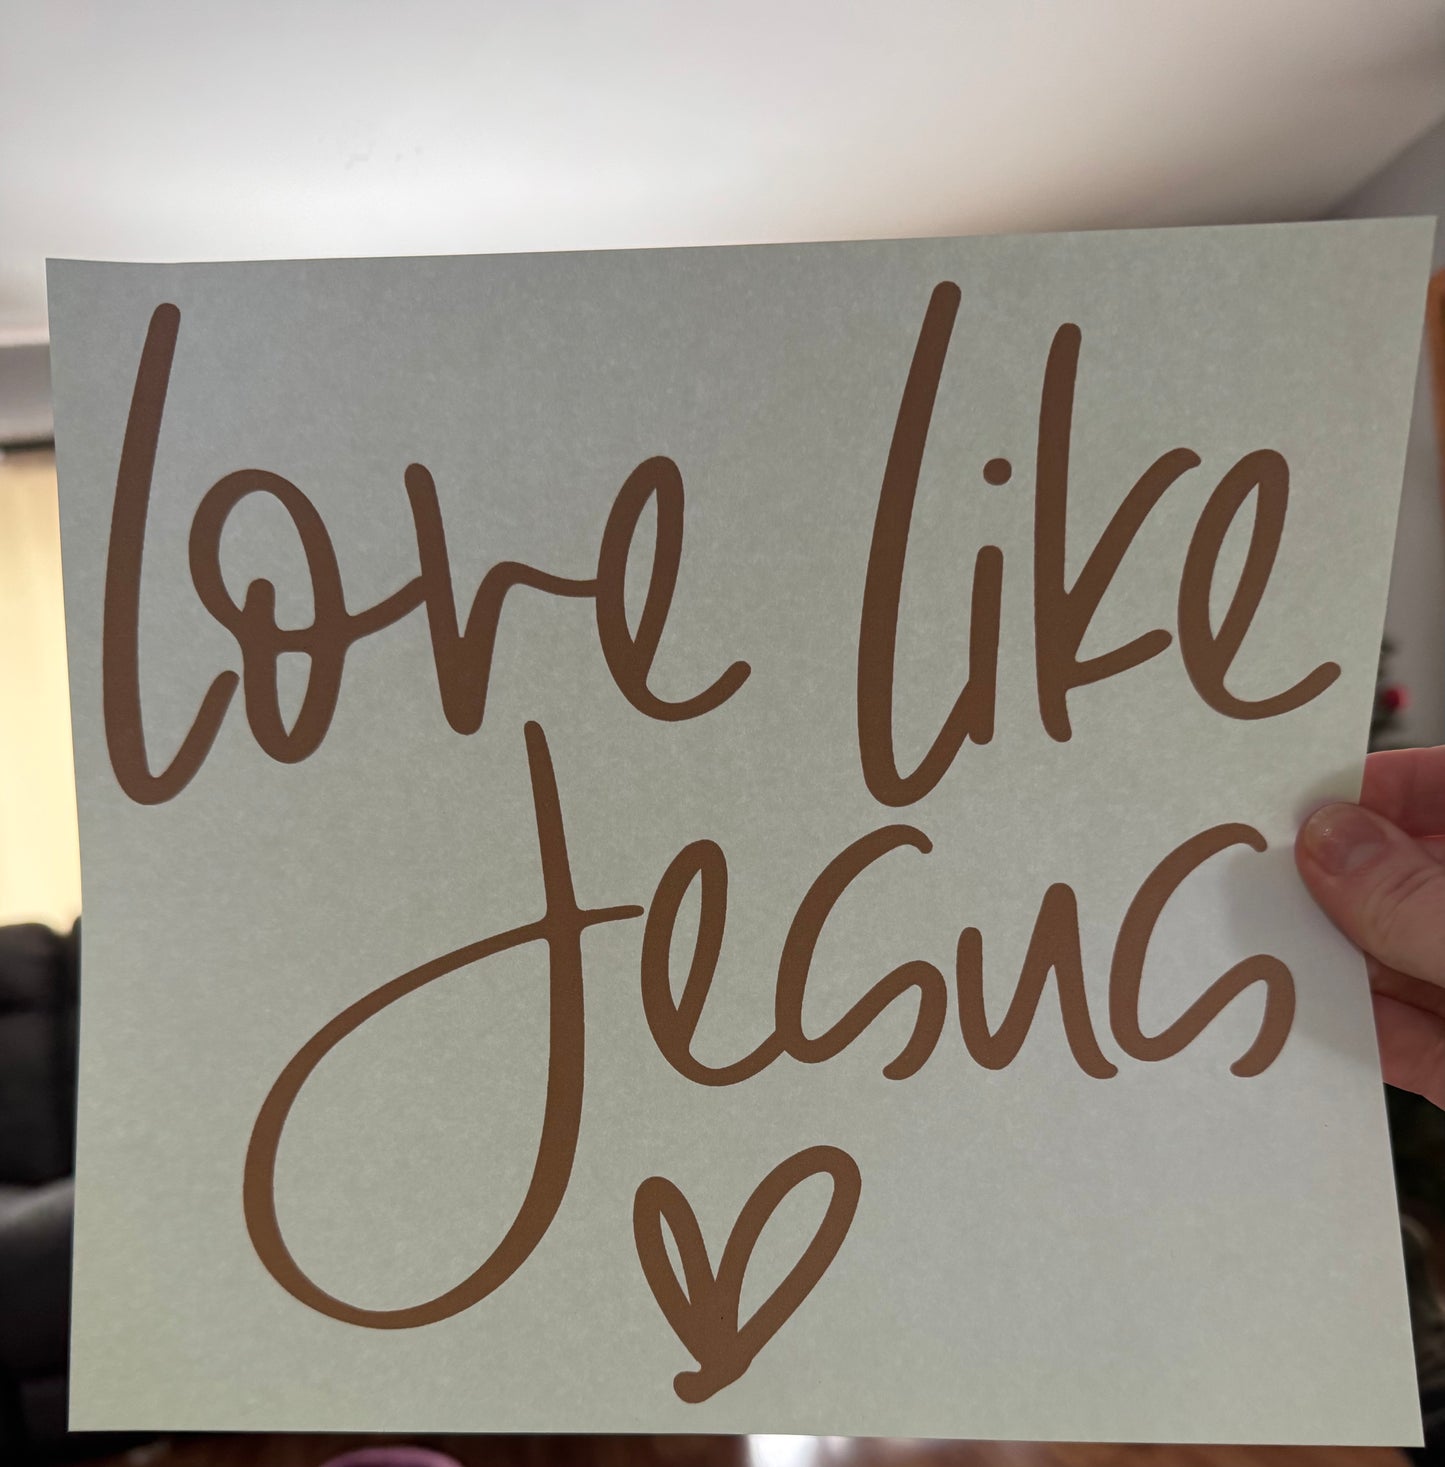 love like
Jesus